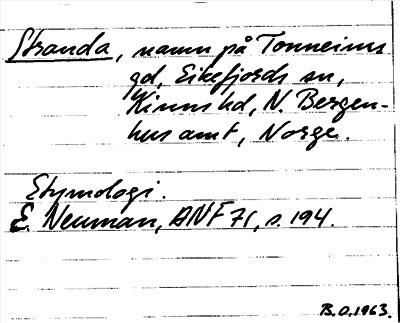 Stranda, namn på Tonneims
gd, Eikefjords sn,
Kinns hd, N. Bergen-
hus amt, Norge.
Etymologi.
E. Neuman, ANF 71, s. 194.
B.O. 1963.